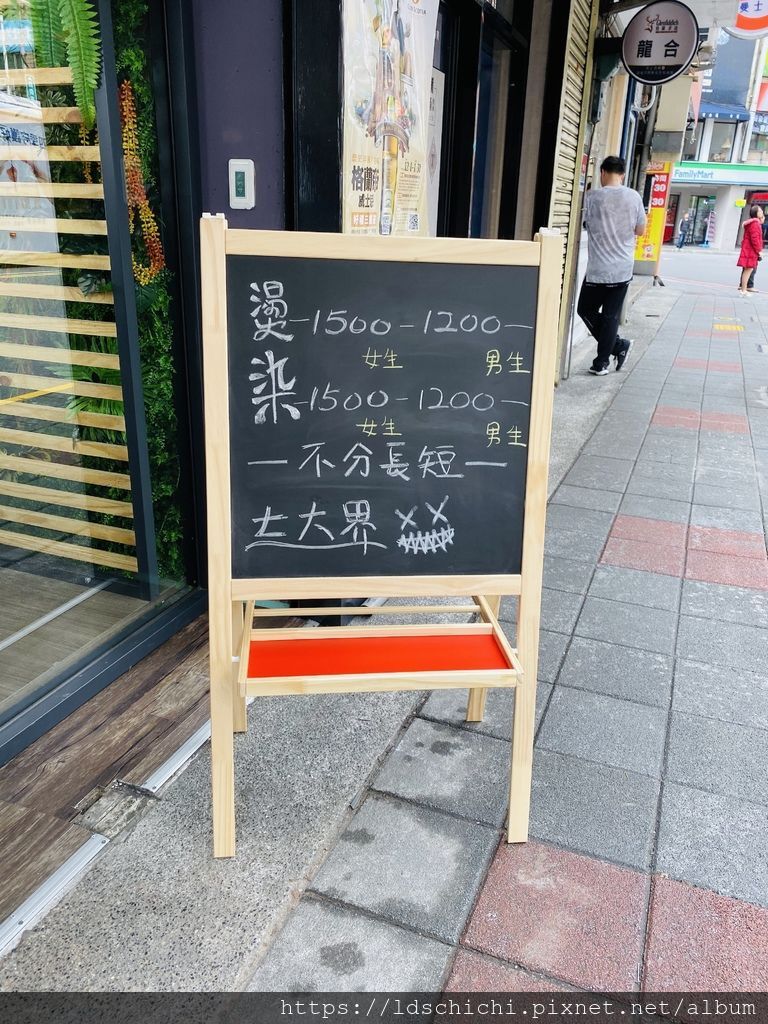 燙-1500-1200-
女生 男生
染-1500-1200-
女生 男生
-不分長短-
大界
格蘭
威士
龍合
FamilyMart
30
30
https://ldschichi.pixnet.net/album